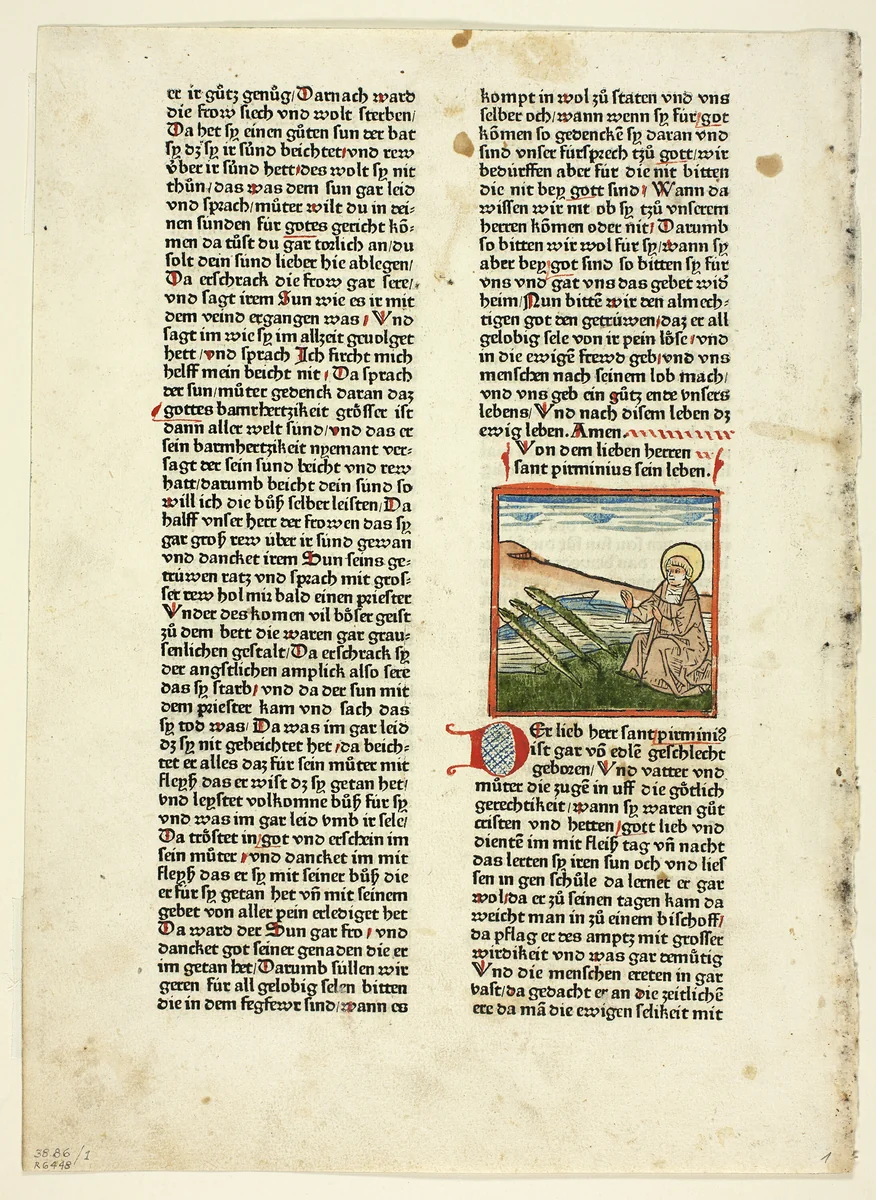 er ir gůtz genůg/Darnach ward
die frow siech vnd wolt sterben/
Da het sy einen gůten sun der bat
sy dz sy ir sünd beichtet/vnd rew
über ir sünd hett/des wolt sy nit
thůn/das was dem sun gar leid
vnd sprach/můter wilt du in dei⸗
nen sünden für gotes gericht kö⸗
men da tůst du gar torlich an/du
solt dein sünd lieber hie ablegen/
Da erschrack die frow gar sere/
vnd sagt irem Sun wie es ir mit
dem veind ergangen was/Vnd
sagt im wie sy im allzeit geuolget
hett/vnd sprach Ich fircht mich
helff mein beicht nit/Da sprach
der sun/můter gedenck daran daz
gottes barmhertzikeit grösser ist
dann aller welt sünd/vnd das er
sein barmhertzikeit nyemant ver⸗
sagt der sein sünd beicht vnd rew
hatt/darumb beicht dein sünd so
will ich die bůß selber leisten/Da
halff vnser herr der frowen das sy
gar groß rew über ir sünd gewan
vnd dancket irem Sun seins ge⸗
trüwen ratz vnd sprach mit gros⸗
ser rew hol mir bald einen priester
Vnder des komen vil böser geist
zů dem bett die waren gar grau⸗
senlichen gestalt/Da erschrack sy
der angstlichen amplick also sere
das sy starb/vnd da der sun mit
dem priester kam vnd sach das
sy tod was/Da was im gar leid
dz sy nit gebeichtet het/da beich⸗
tet er alles daz für sein můter mit
fleyß das er wist dz sy getan het/
vnd leystet volkomne bůß für sy
vnd was im gar leid vmb ir sele/
Da tröstet in/got vnd erschein im
sein můter/vnd dancket im mit
fleyß das er sy mit seiner bůß die
er für sy getan het vñ mit seinem
gebet von aller pein erlediget het
Da ward der Sun gar fro/vnd
dancket got seiner genaden die er
im getan het/Darumb süllen wir
geren für all gelobig selen bitten
die in dem fegfewr sind/wann es
kompt in wol zů staten vnd vns
selber och/wann wenn sy für/got
kömen so gedenckē sy daran vnd
sind vnser fürsprech tzů gott/wir
bedürffen aber für die nit bitten
die nit bey gott sind/Wann da
wissen wir nit ob sy tzů vnserem
herren kömen oder nit/Darumb
so bitten wir wol für sy/wann sy
aber bey/got sind so bitten sy für
vns vnd gat vns das gebet wiđ
heim/Nun bittē wir den almech⸗
tigen got den getrüwen/daz er all
gelobig sele von ir pein löse/vnd
in die ewigē frewd geb/vnd vns
menschen nach seinem lob mach/
vnd vns geb ein gůtz ende vnsers
lebens/Vnd nach disem leben dz
ewig leben. Amen.
Von dem lieben herren
sant pirminius sein leben.
DEr lieb herr sant/pirminiꝰ
ist gar vō edlē geschlecht
geboren/Vnd vatter vnd
můter die zugē in uff die götlich
gerechtikeit/wann sy waren gůt
cristen vnd hetten/gott lieb vnd
dientē im mit fleiß tag vñ nacht
das lerten sy iren sun och vnd lies
sen in gen schůle da lernet er gar
wol/da er zů seinen tagen kam da
weicht man in zů einem bischoff/
da pflag er des amptz mit grosser
wirdikeit vnd was gar demütig
Vnd die menschen ereten in gar
vast/da gedacht er an die zeitlichē
ere da mā die ewigen selikeit mit
38.86/1
R6448
1